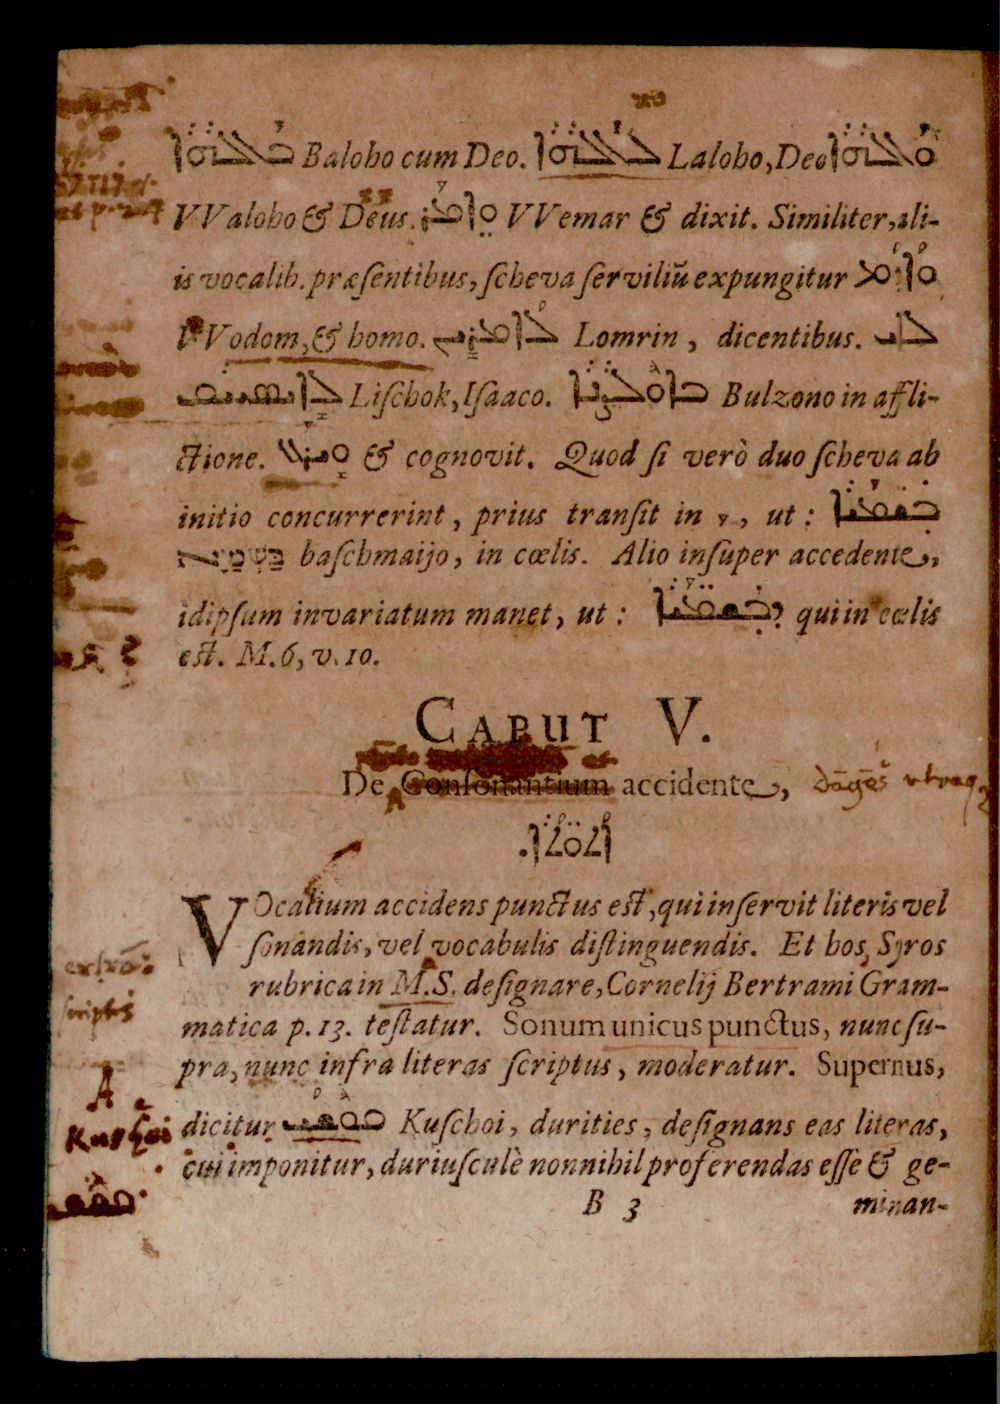 ܒܐܠܗܐ Baloho cum Deo. ܠܐܠܗܐ Laloho, Deo ܘܐܠܗܐ
VValoho & Deus. ܘܐܡܪ VVemar & dixit. Similiter, ali-
is vocalib. præſentibus, ſcheva ſerviliū expungitur ܘܐܕܡ
VVodom, & homo. ܠܐܡܪܝܢ Lomrin, dicentibus.
ܠܐܝܣܚܩ Liſchok, Iſaaco. ܒܐܘܠܨܢܐ Bulzono in affli-
ctione. & cognovit. Quod ſi verò duo ſcheva ab
initio concurrerint, prius tranſit in , ut: ܒܫܡܝܐ
baſchmaijo, in cœlis. Alio inſuper accedente,
idipſum invariatum manet, ut: ܕܒܫܡܝܐ qui in cœlis
eſt. M. 6, v. 10.
CAPUT V.
De Conſonantium accidente,
VOcalium accidens punctus eſt, qui inſervit literis vel
ſonandis, vel vocabulis diſtinguendis. Et hos, Syros
rubrica in M.S. deſignare, Cornelij Bertrami Gram-
matica p. 13. teſtatur. Sonum unicus punctus, nunc ſu-
pra, nunc infra literas ſcriptus, moderatur. Supernus,
dicitur ܩܘܫܝ Kuſchoi, durities, deſignans eas literas,
cui imponitur, duriuſculè nonnihil proferendas eſſe & ge-
B 3
minan-